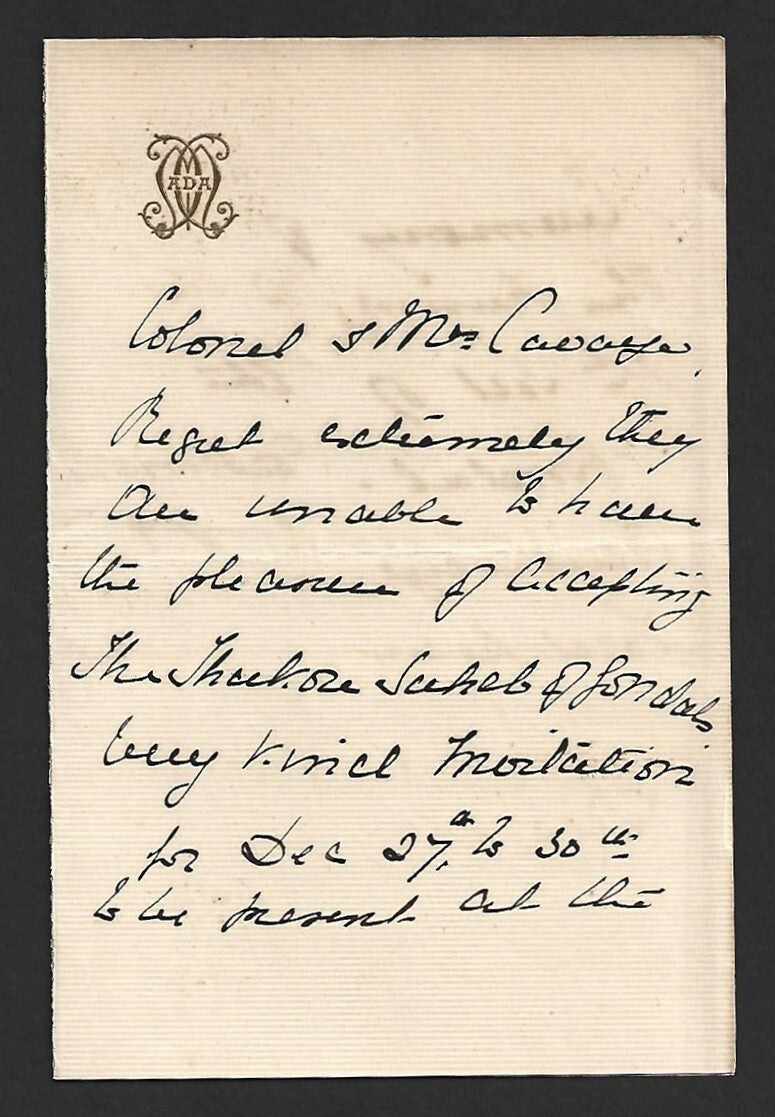 ADA
Colonel & Mrs Cavaye.
Regret extremely they
are unable to have
the pleasure of accepting
The Thakore Saheb of Gondals
very kind Invitation
for Dec 27th to 30th
to be present at the